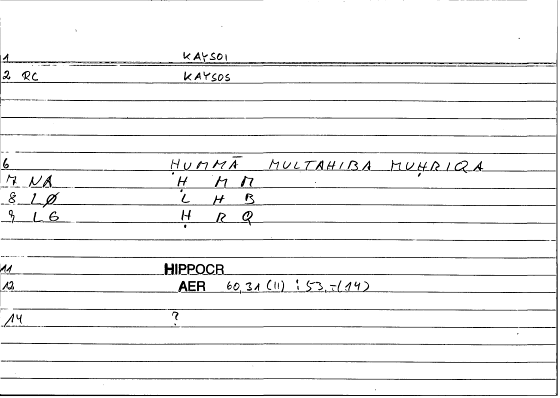 1 KAYSOI
2 RC KAYSOS
6 ḤUMMĀ MULTAHIBA MUḤRIQA
7 NA Ḥ M M
8 LØ L H B
9 LG Ḥ R Q
11 HIPPOCR
12 AER 60,31 (11) : 53,-(14)
14 ?